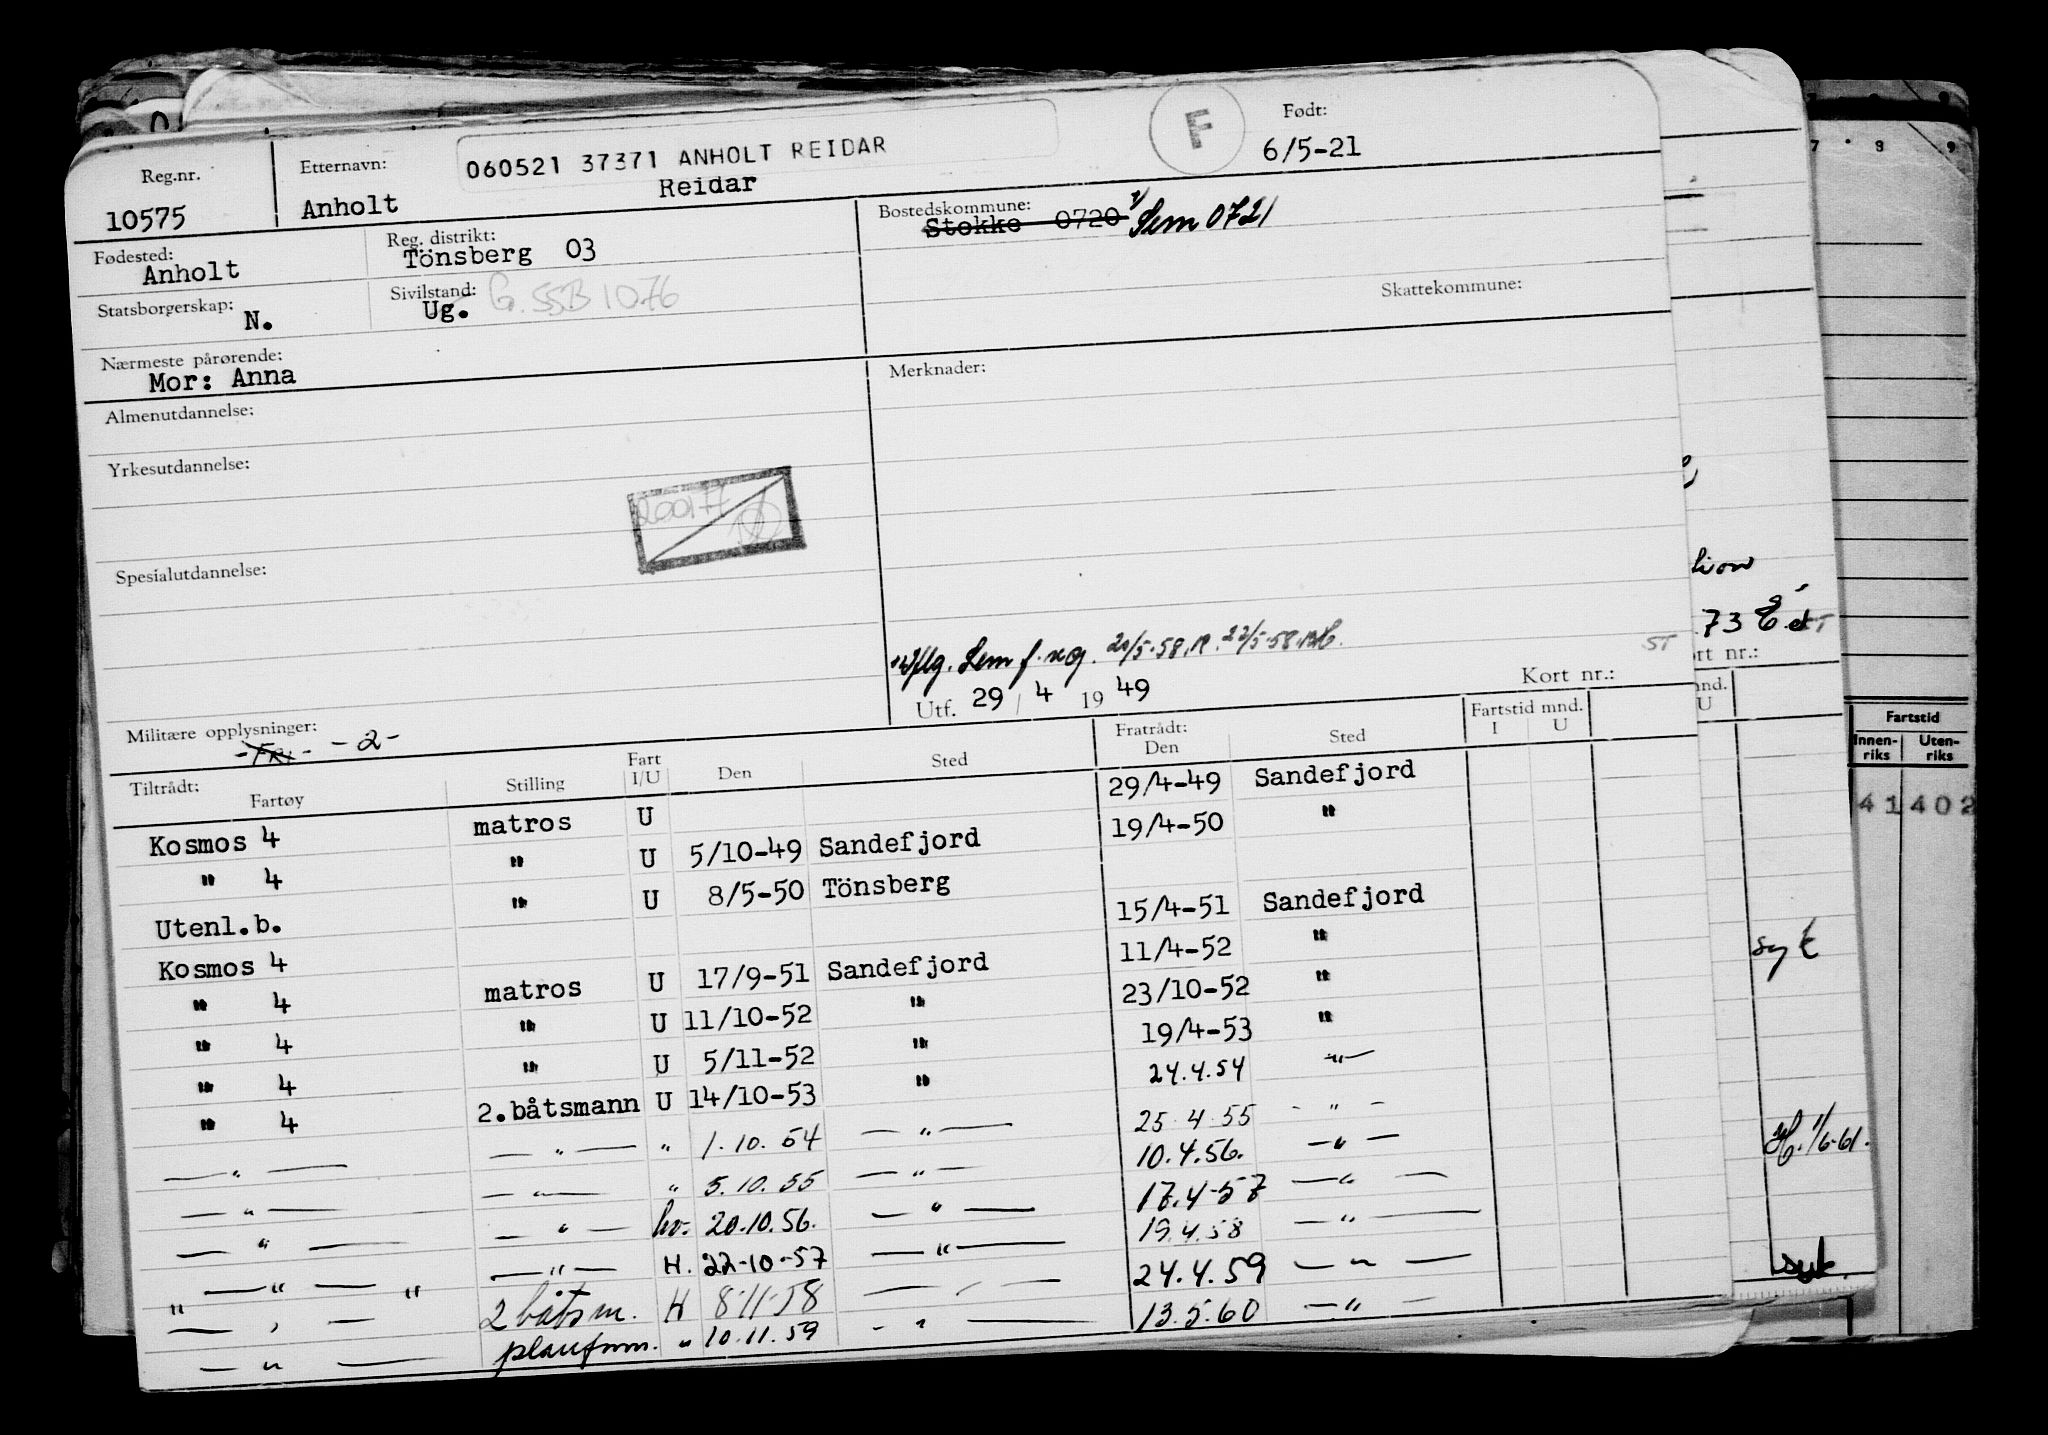 Reg.nr. Etternavn: 060521 37371 ANHOLT REIDAR F Født:
10575 Anholt Reidar 6/5-21
Fødested: Reg. distrikt: Bostedskommune:
Anholt Tönsberg 03 Stokke 0720 Sem 0721
Statsborgerskap: Sivilstand: Skattekommune:
N. Ug. G. SSB 10.76
Nærmeste pårørende: Merknader:
Mor: Anna
Almenutdannelse:
Yrkesutdannelse:
200177
Spesialutdannelse:
Sem f. reg. 20/5-58. 22/5-58.
ST
Utf. 29 / 4 1949 Kort nr.:
Militære opplysninger: - 2 -
Tiltrådt: Fratrådt: Fartstid mnd.
Fartøy Stilling Fart I/U Den Sted Den Sted I U
Kosmos 4 matros U 29/4-49 Sandefjord
" 4 " U 5/10-49 Sandefjord 19/4-50 "
Utenl.b. " U 8/5-50 Tönsberg
Kosmos 4 15/4-51 Sandefjord
" 4 matros U 17/9-51 Sandefjord 11/4-52 "
" 4 " U 11/10-52 " 23/10-52 "
" 4 " U 5/11-52 " 19/4-53 "
" 4 2.båtsmann U 14/10-53 " 24.4.54 — " —
— " — — " — " 1.10.54 — " — 25.4.55 — " —
— " — — " — " 5.10.55 — " — 10.4.56. — " —
— " — — " — hv. 20.10.56. — " — 17.4-57 — " —
" — " — " — " — H. 22-10-57 — " — 19.4.58 — " —
— " — 2 båtsm. H 8-11-58 — " — 24.4.59 — " —
— " — planform. " 10.11.59 - " — 13.5.60 — " —
7 8 9
73
ort nr.:
mnd.
U
syk
1/6-61.
syk
Fartstid
Innen-riks Uten-riks
41 402